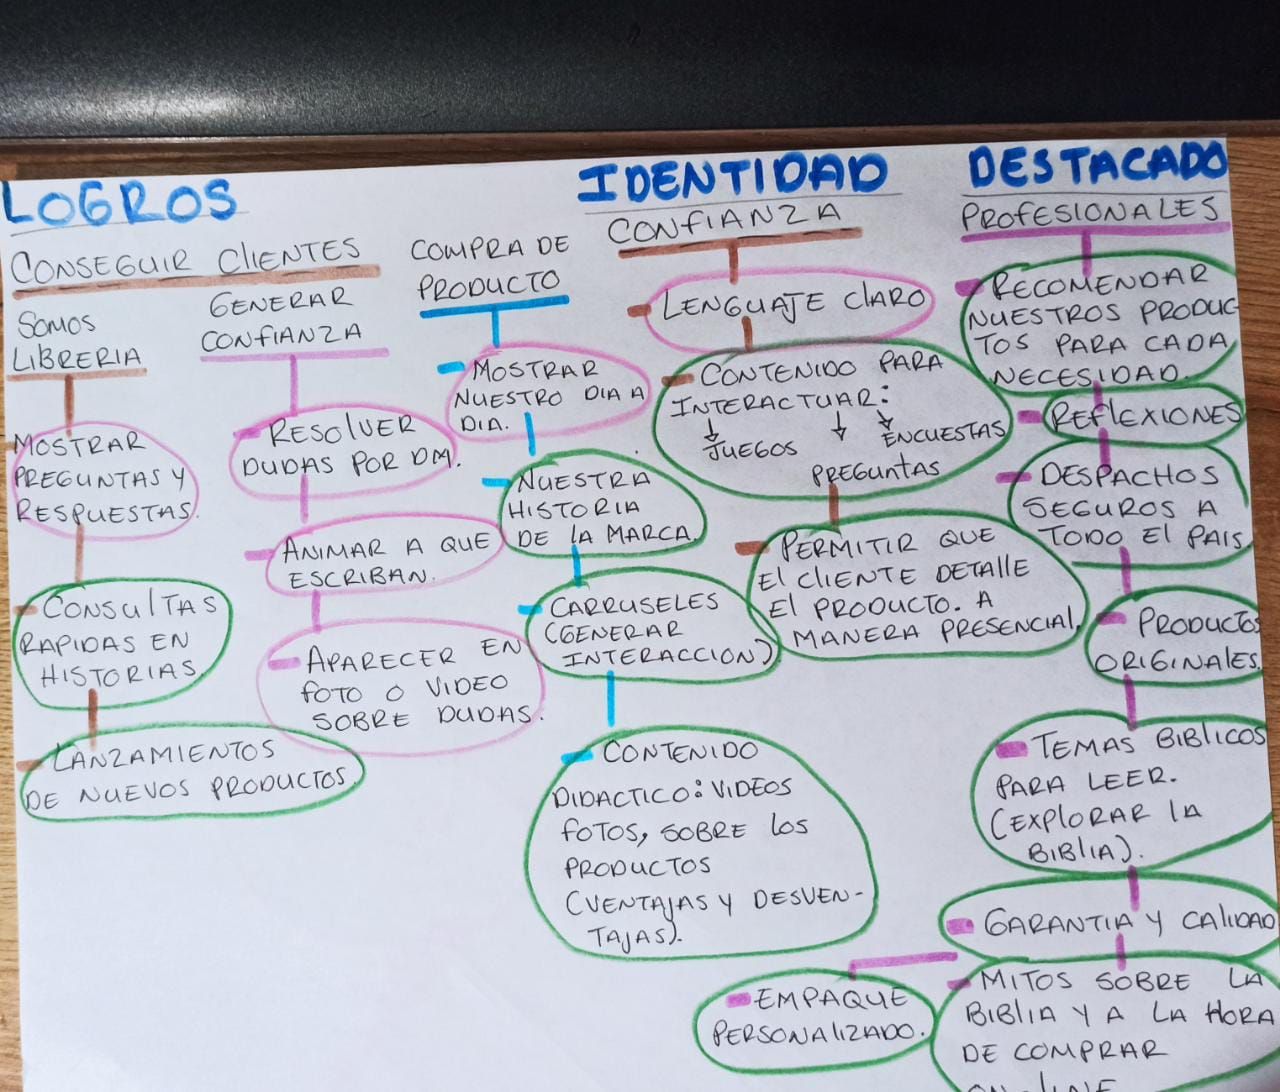 LOGROS
CONSEGUIR CLIENTES
SOMOS
LIBRERIA
MOSTRAR
PREGUNTAS Y
RESPUESTAS.
CONSULTAS
RAPIDAS EN
HISTORIAS.
LANZAMIENTOS
DE NUEVOS PRODUCTOS.
GENERAR
CONFIANZA
RESOLVER
DUDAS POR DM.
ANIMAR A QUE
ESCRIBAN.
APARECER EN
FOTO O VIDEO
SOBRE DUDAS.
COMPRA DE
PRODUCTO
MOSTRAR
NUESTRO DIA A
DIA.
NUESTRA
HISTORIA
DE LA MARCA.
CARRUSELES
(GENERAR
INTERACCION)
CONTENIDO
DIDACTICO: VIDEOS
FOTOS, SOBRE LOS
PRODUCTOS
(VENTAJAS Y DESVEN-
TAJAS).
IDENTIDAD
CONFIANZA
LENGUAJE CLARO
CONTENIDO PARA
INTERACTUAR:
↓ ↓ ↓
JUEGOS ENCUESTAS
PREGUNTAS
PERMITIR QUE
EL CLIENTE DETALLE
EL PRODUCTO. A
MANERA PRESENCIAL.
DESTACADO
PROFESIONALES
RECOMENDAR
NUESTROS PRODUC-
TOS PARA CADA
NECESIDAD.
REFLEXIONES
DESPACHOS
SEGUROS A
TODO EL PAIS
PRODUCTOS
ORIGINALES.
TEMAS BIBLICOS
PARA LEER.
(EXPLORAR LA
BIBLIA).
GARANTIA Y CALIDAD
EMPAQUE
PERSONALIZADO.
MITOS SOBRE LA
BIBLIA Y A LA HORA
DE COMPRAR
ON-LINE